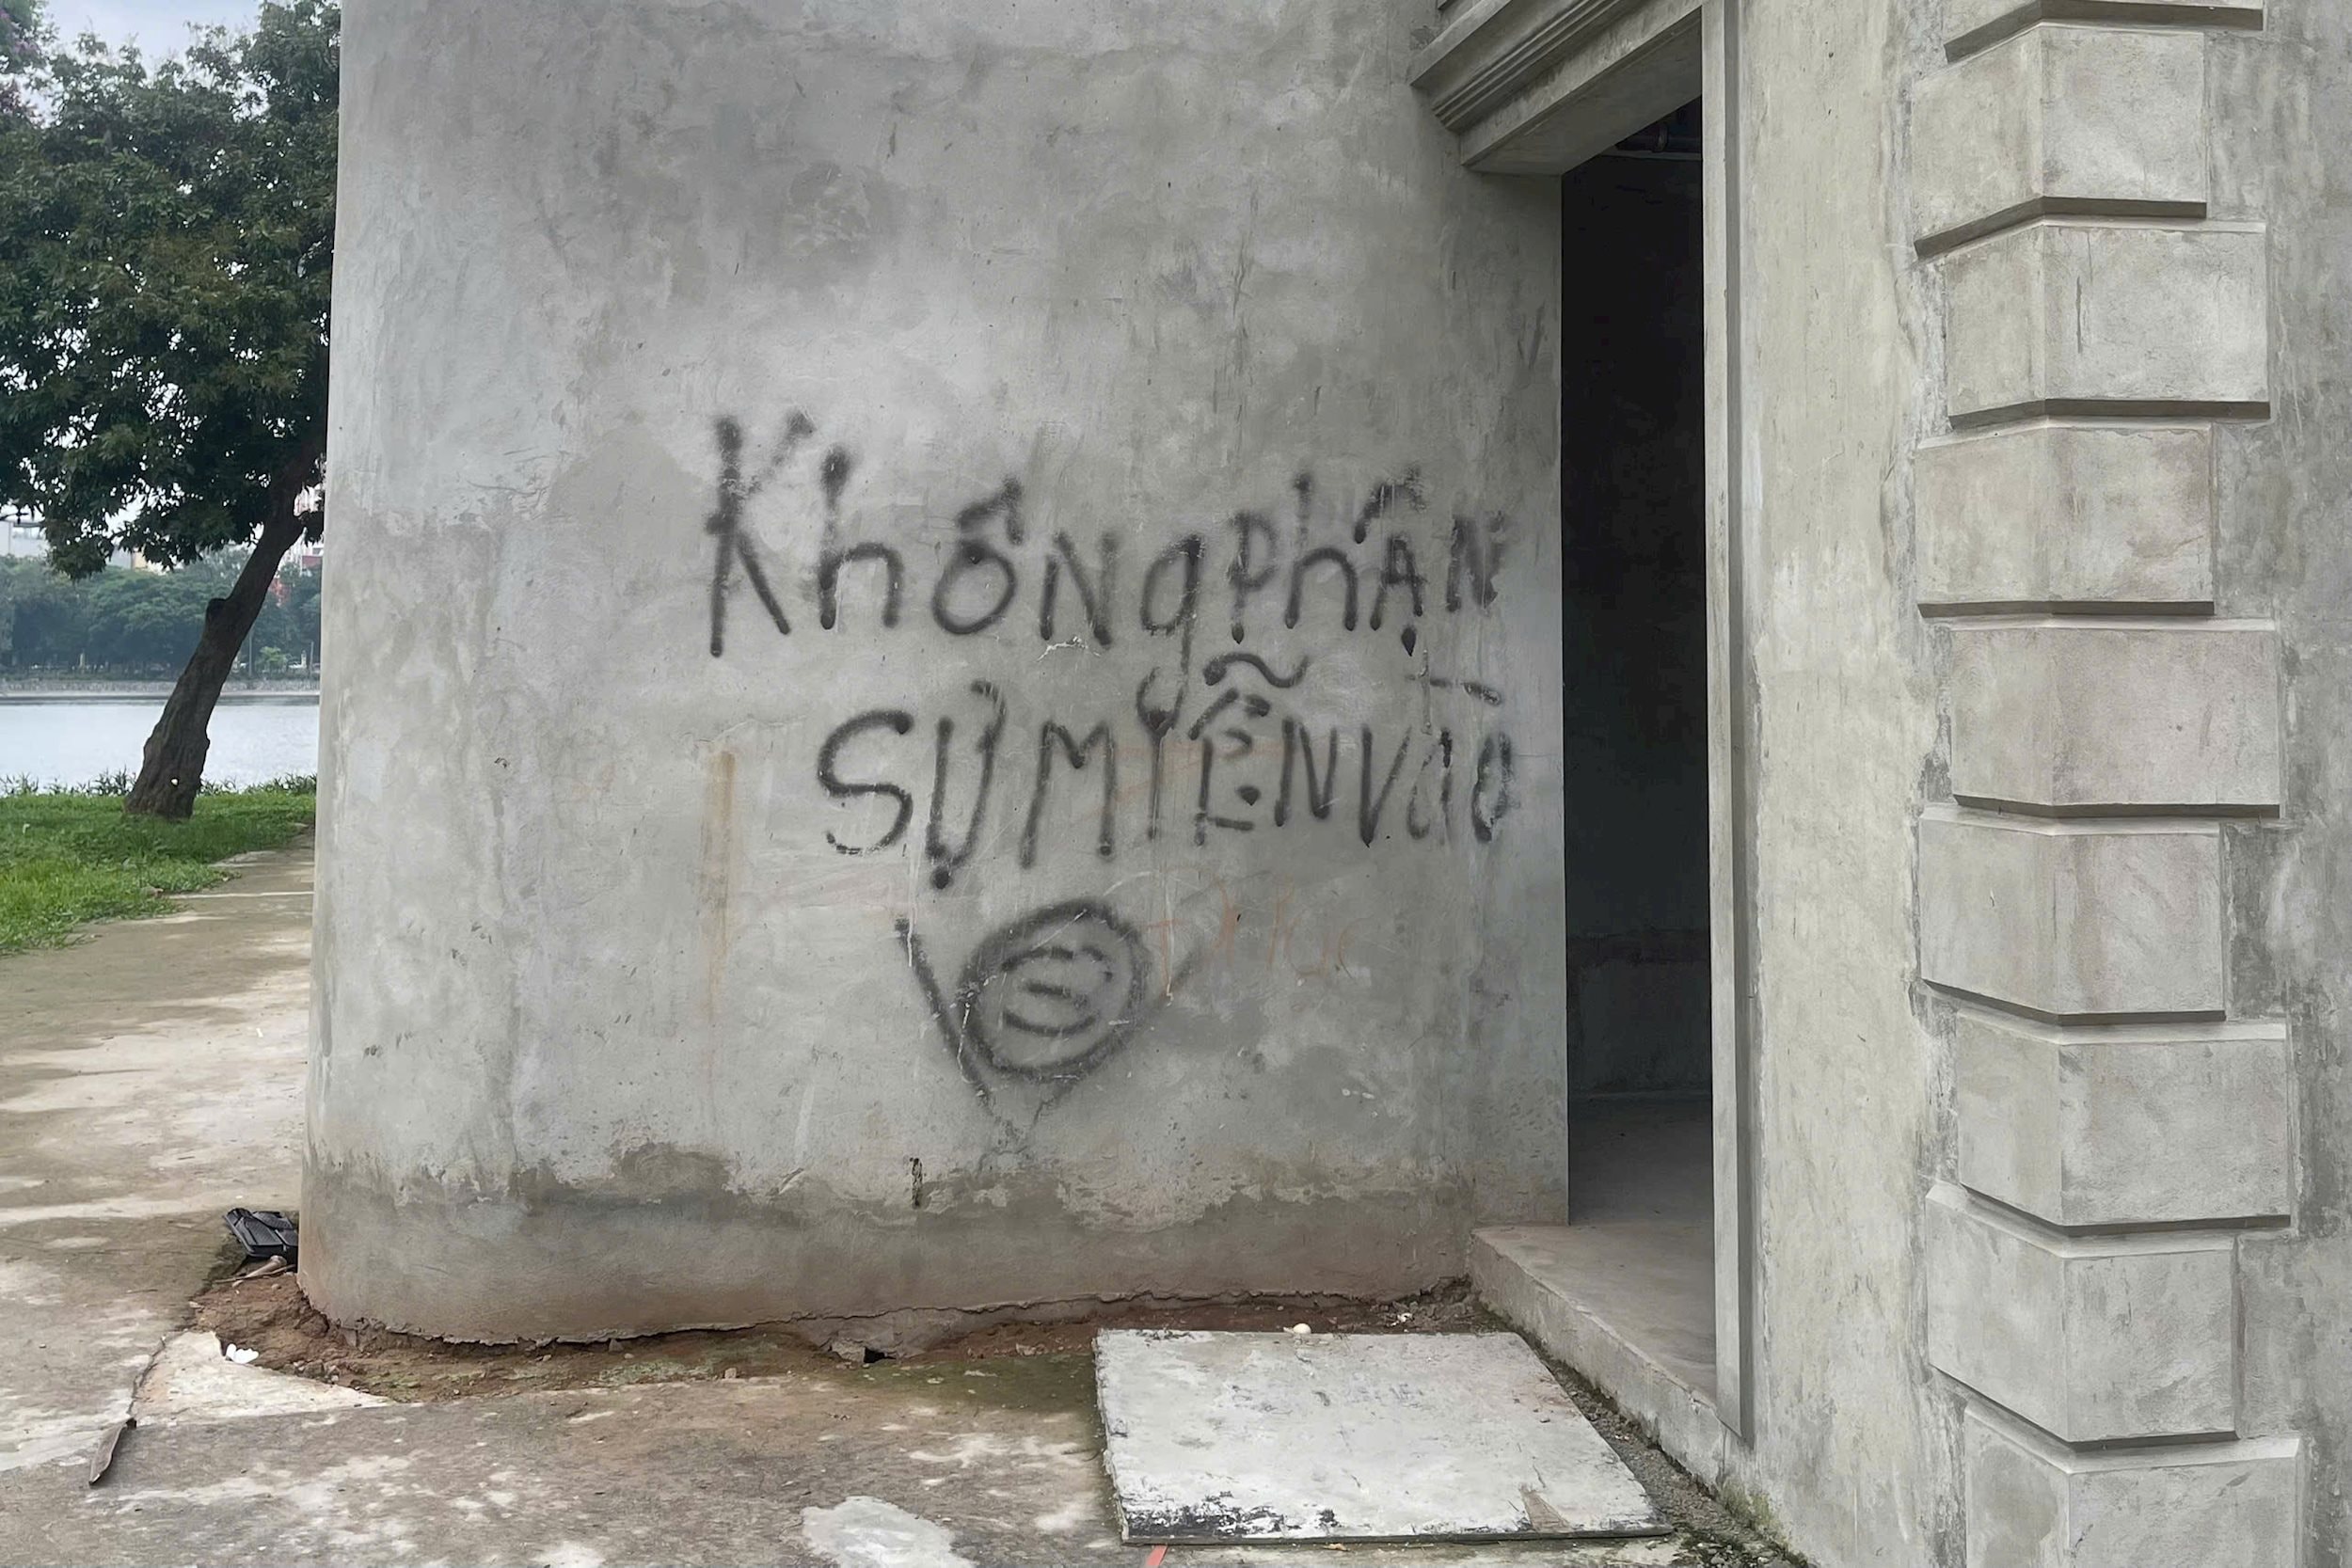 Không phận
sự miễn vào